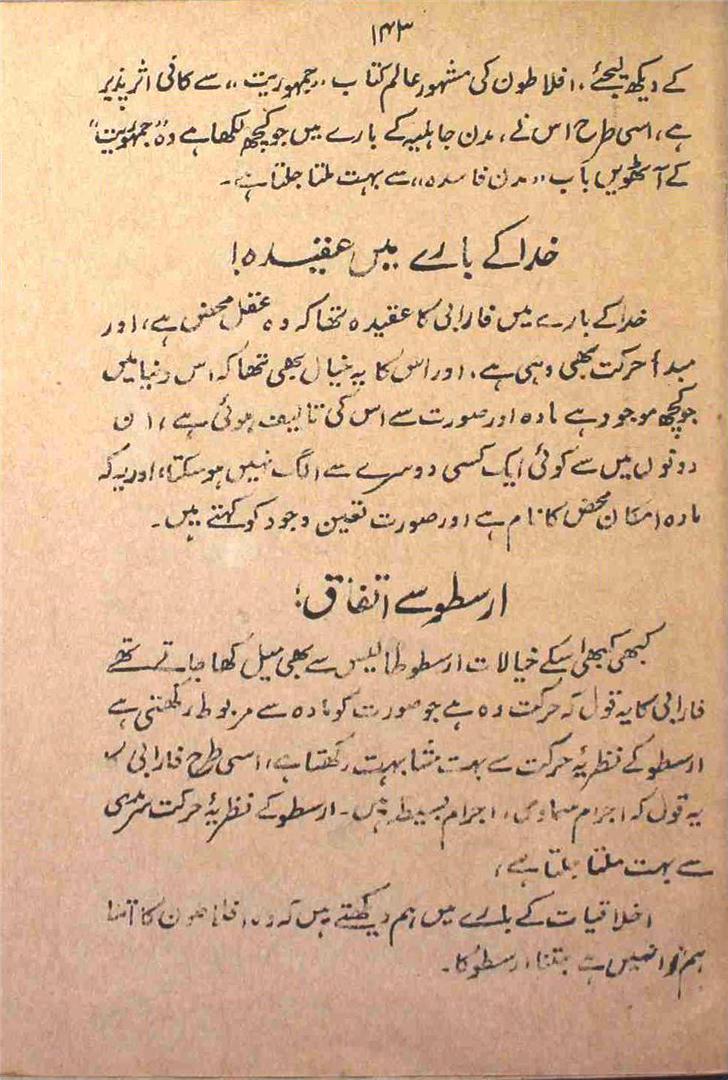 ۱۴۳
کے دیکھ لیجئے، افلاطون کی مشہور عالم کتاب ،،جمہوریت،، سے کافی اثر پذیر
ہے، اسی طرح اس نے، مدن جاہلیہ کے بارے میں جو کچھ لکھا ہے وہ "جمہوریت"
کے آٹھویں باب ،،مدن فاسدہ،، سے بہت ملتا جلتا ہے۔
خدا کے بارے میں عقیدہ!
خدا کے بارے میں فارابی کا عقیدہ تھا کہ وہ عقل محض ہے، اور
مبدأ حرکت بھی وہی ہے، اور اس کا یہ خیال بھی تھا کہ اس دنیا میں
جو کچھ موجود ہے مادہ اور صورت سے اس کی تالیف ہوئی ہے، ان
دونوں میں سے کوئی ایک کسی دوسرے سے الگ نہیں ہو سکتا، اور یہ کہ
مادہ امکان محض کا نام ہے اور صورت تعین وجود کو کہتے ہیں۔
ارسطو سے اتفاق؛
کبھی کبھی اسکے خیالات ارسطوطالیس سے بھی میل کھا جاتے تھے
فارابی کا یہ قول کہ حرکت وہ ہے جو صورت کو مادہ سے مربوط رکھتی ہے
ارسطو کے نظریۂ حرکت سے بہت مشابہت رکھتا ہے، اسی طرح فارابی کا
یہ قول کہ اجرام سماوی، اجرام بسیط ہیں۔ ارسطو کے نظریۂ حرکت سرمدی
سے بہت ملتا جلتا ہے،
اخلاقیات کے بارے میں ہم دیکھتے ہیں کہ وہ افلاطون کا اتنا
ہم نوا نہیں ہے جتنا ارسطو کا۔